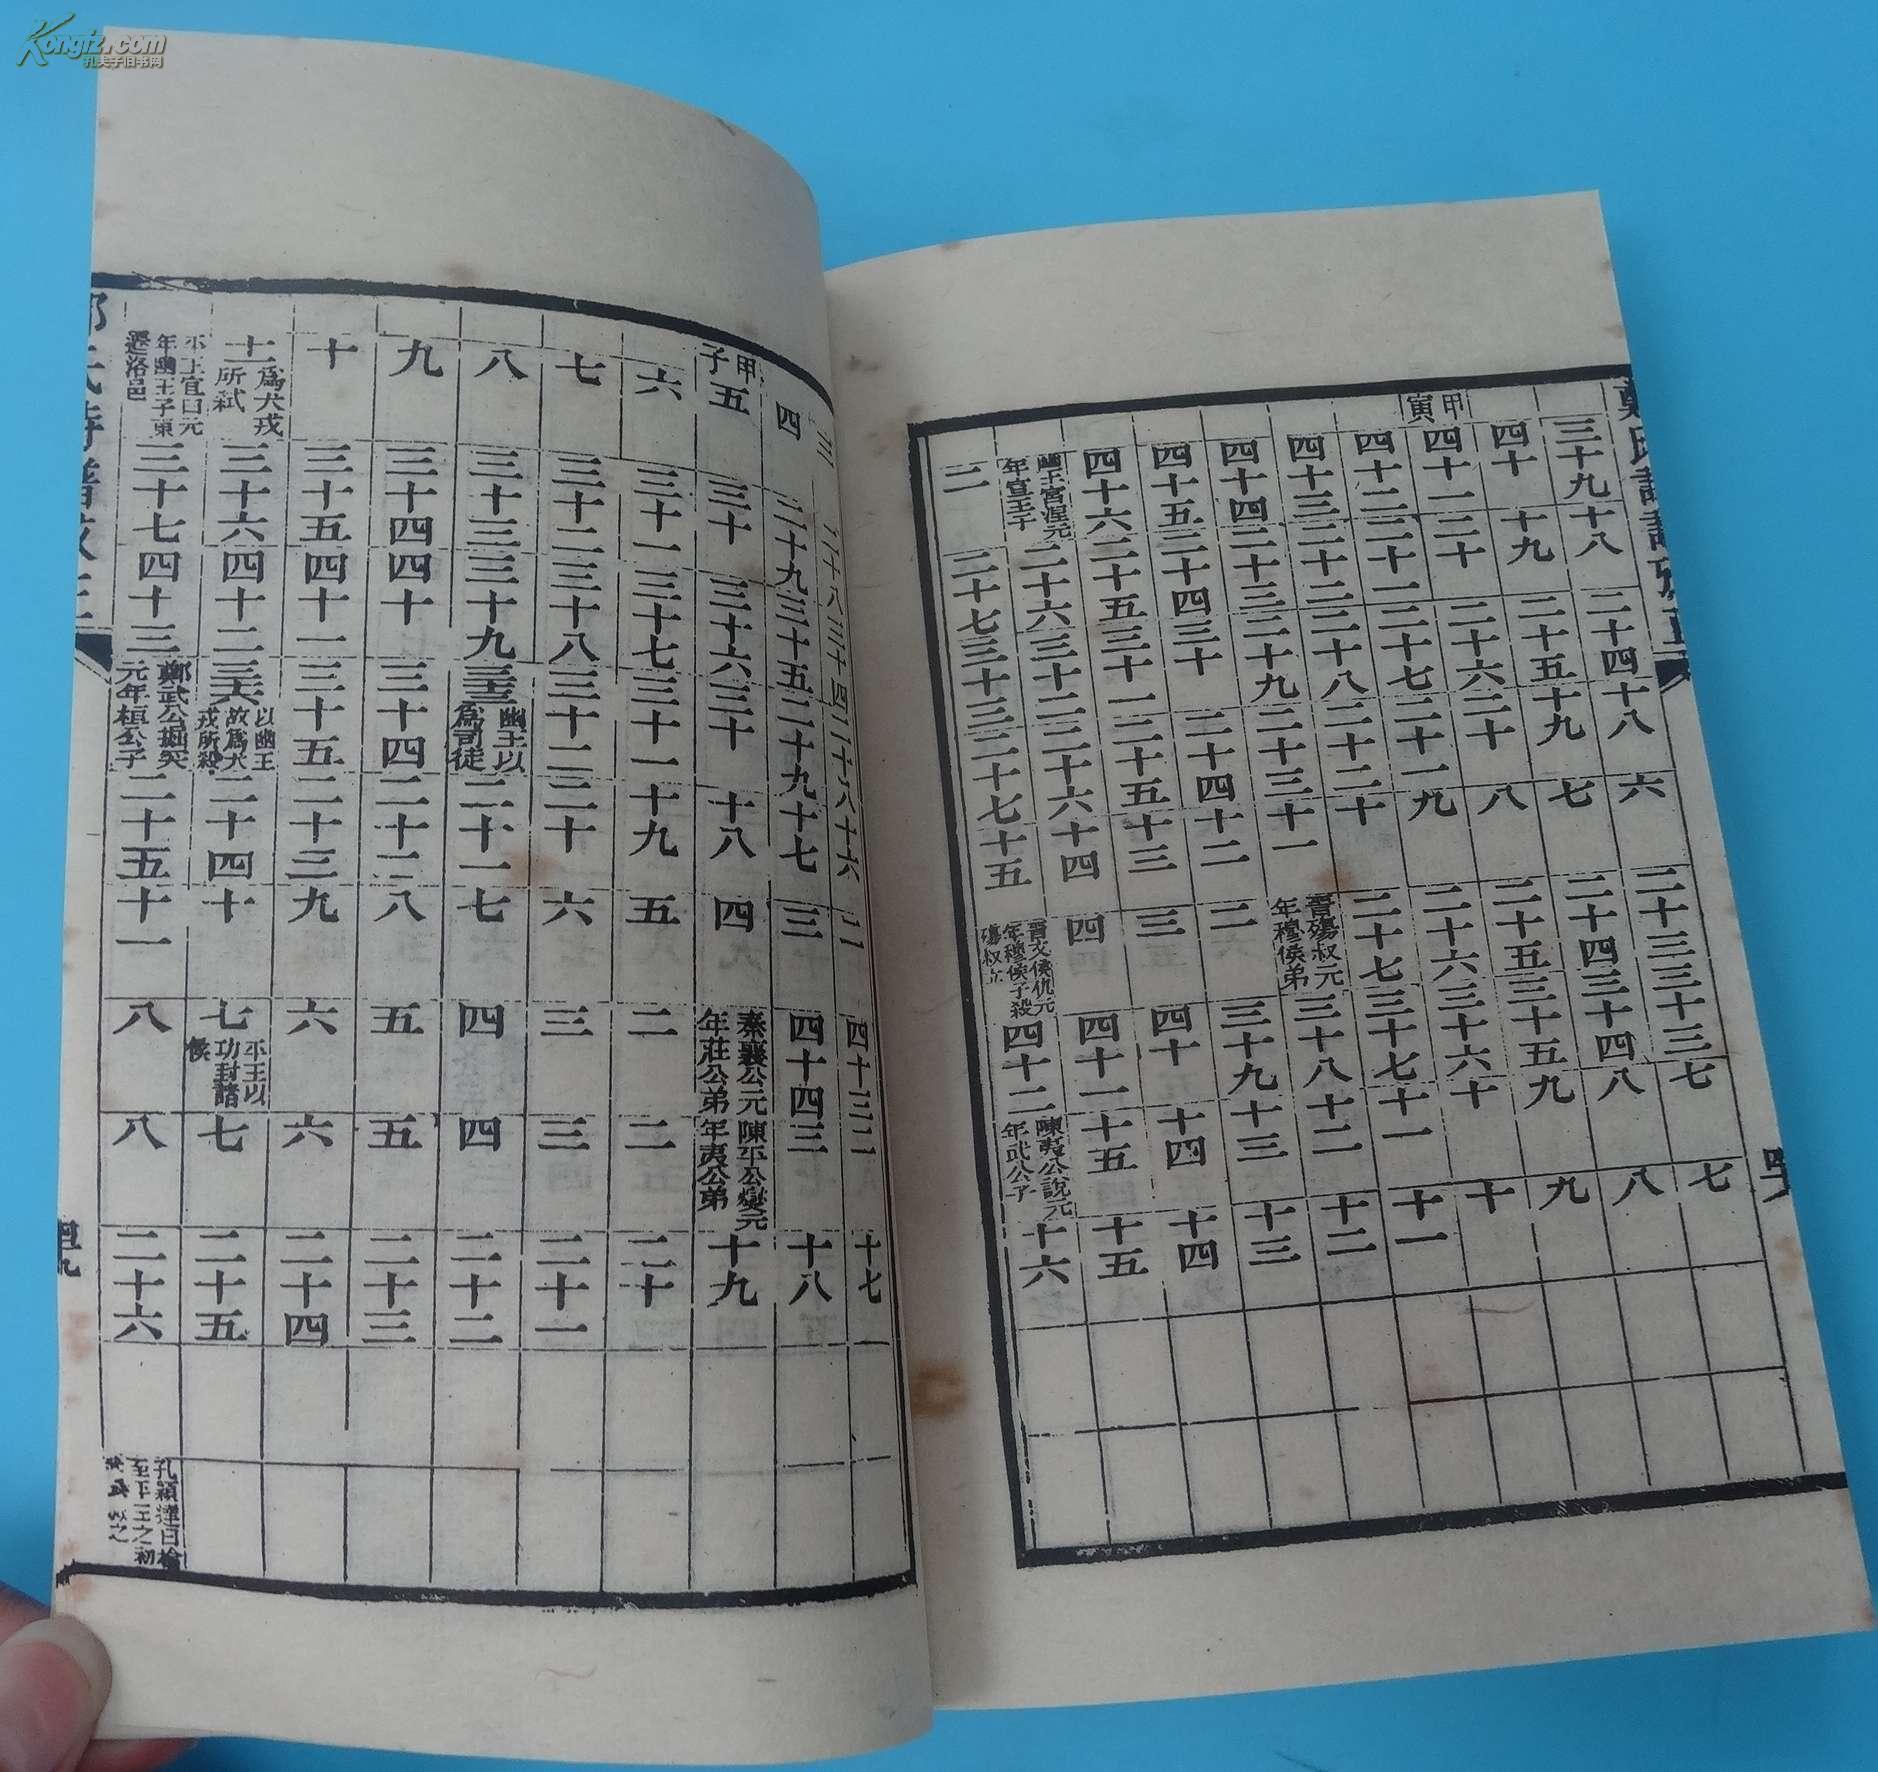 鄭氏詩譜攷正
三十九 十八 二十四 十八 六 二十三 三十三 七 七
四十 十九 二十五 十九 七 二十四 三十四 八 八
甲寅 四十一 二十 二十六 二十 八 二十五 三十五 九 九
四十二 二十一 二十七 二十一 九 二十六 三十六 十 十
四十三 二十二 二十八 二十二 十 二十七 三十七 十一 十一
四十四 二十三 二十九 二十三 十一 晉殤叔元年穆侯弟 三十八 十二 十二
四十五 二十四 三十 二十四 十二 二 三十九 十三 十三
四十六 二十五 三十一 二十五 十三 三 四十 十四 十四
幽王宮涅元年宣王子 二十六 三十二 二十六 十四 四 四十一 十五 十五
二 二十七 三十三 二十七 十五 晉文侯仇元年穆侯子殺殤叔立 四十二 陳夷公說元年武公子 十六
三 二十八 三十四 二十八 十六 二 四十三 二 十七
四 二十九 三十五 二十九 十七 三 四十四 三 十八
甲子 五 三十 三十六 三十 十八 四 秦襄公元年莊公弟 陳平公燮元年夷公弟 十九
六 三十一 三十七 三十一 十九 五 二 二 二十
七 三十二 三十八 三十二 二十 六 三 三 二十一
八 三十三 三十九 三十三 幽王以爲司徒 二十一 七 四 四 二十二
九 三十四 四十 三十四 二十二 八 五 五 二十三
十 三十五 四十一 三十五 二十三 九 六 六 二十四
十一 爲犬戎所弒 三十六 四十二 三十六 以幽王故爲犬戎所殺 二十四 十 七 平王以功封諸侯 七 二十五
平王宜臼元年幽王子東遷洛邑 三十七 四十三 鄭武公掘突元年桓公子 二十五 十一 八 八 二十六 孔穎達曰檜至平王之初
鄭氏詩譜攷正
Kongfz.com
孔夫子旧书网